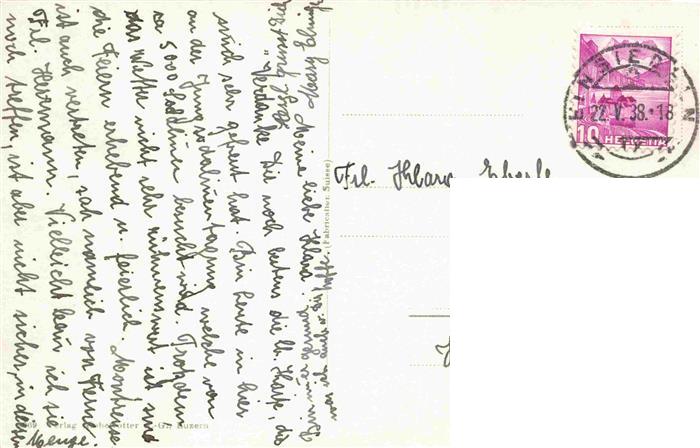 Meine liebe Klara.
Verdanke Dir noch bestens die lb. Karte, die
mich sehr gefreut hat. Bin heute in hier
an der Jungsodalinentagung, welche von
ca 5000 Sodalinen besucht wird. Trotzdem
das Wetter nicht sehr rühmenswert ist sind
die Feiern erhebend u. feierlich. Montreux
ist auch vertreten, sah nämlich von Ferne
Frl. Herrmann. Vielleicht kann ich sie
noch treffen, ist aber nicht sicher, in dieser
Menge.
Frl. Klara Eberle
EINSIEDELN
22. V. 38. 18
10 HELVETIA
(Fabrication Suisse)
Verlag Globetrotter A.-G., Luzern